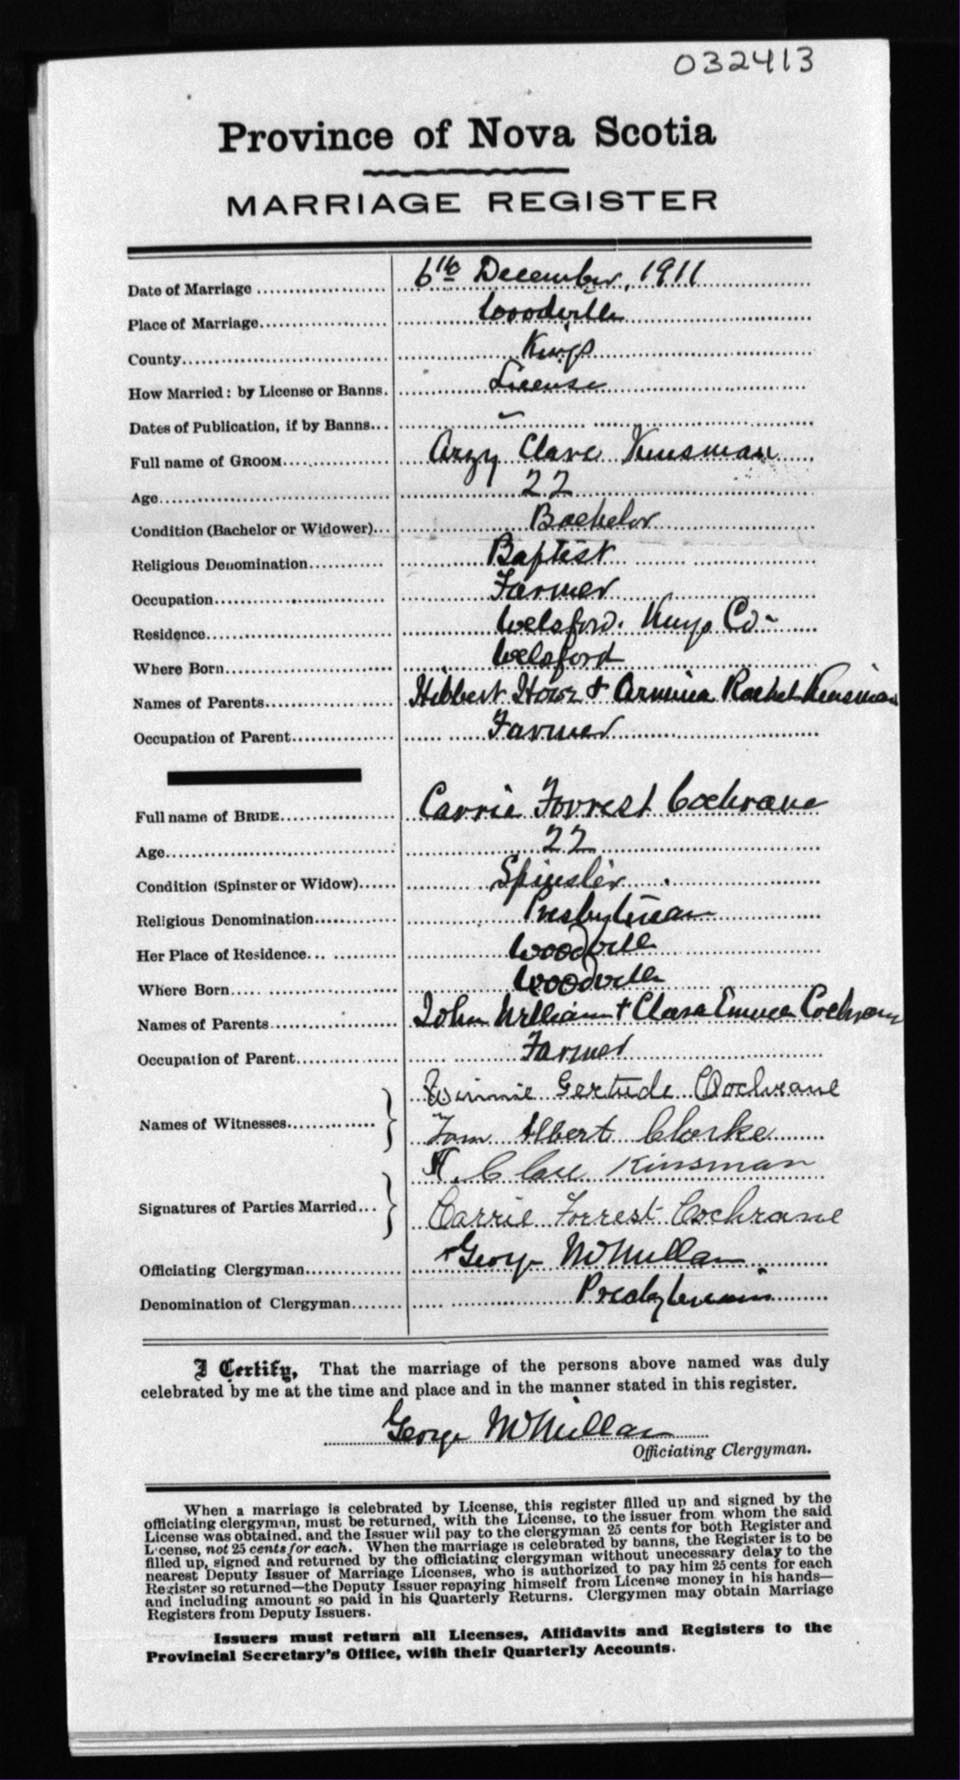 032413
Province of Nova Scotia
MARRIAGE REGISTER
Date of Marriage 6th December, 1911
Place of Marriage Woodville
County Kings
How Married: by License or Banns. License
Dates of Publication, if by Banns... –
Full name of GROOM Arzy Clare Kinsman
Age 22
Condition (Bachelor or Widower)... Bachelor
Religious Denomination Baptist
Occupation Farmer
Residence Welsford. Kings Co-
Where Born Welsford
Names of Parents Hibbert Howe & Armina Rachel Kinsman
Occupation of Parent Farmer
Full name of BRIDE Carrie Forrest Cochrane
Age 22
Condition (Spinster or Widow) Spinster
Religious Denomination Presbyterian
Her Place of Residence Woodville
Where Born Woodville
Names of Parents John William & Clara Emma Cochrane
Occupation of Parent Farmer
Winnie Gertude Cochrane
Names of Witnesses
Tom Albert Clarke
A. Clare Kinsman
Signatures of Parties Married...
Carrie Forrest Cochrane
Officiating Clergyman George McMillan
Denomination of Clergyman Presbyterian
I Certify, That the marriage of the persons above named was duly
celebrated by me at the time and place and in the manner stated in this register.
George McMillan
Officiating Clergyman.
When a marriage is celebrated by License, this register filled up and signed by the
officiating clergyman, must be returned, with the License, to the issuer from whom the said
License was obtained, and the Issuer will pay to the clergyman 25 cents for both Register and
License, not 25 cents for each. When the marriage is celebrated by banns, the Register is to be
filled up, signed and returned by the officiating clergyman without unnecessary delay to the
nearest Deputy Issuer of Marriage Licenses, who is authorized to pay him 25 cents for each
Register so returned—the Deputy Issuer repaying himself from License money in his hands—
and including amount so paid in his Quarterly Returns. Clergymen may obtain Marriage
Registers from Deputy Issuers.
Issuers must return all Licenses, Affidavits and Registers to the
Provincial Secretary's Office, with their Quarterly Accounts.